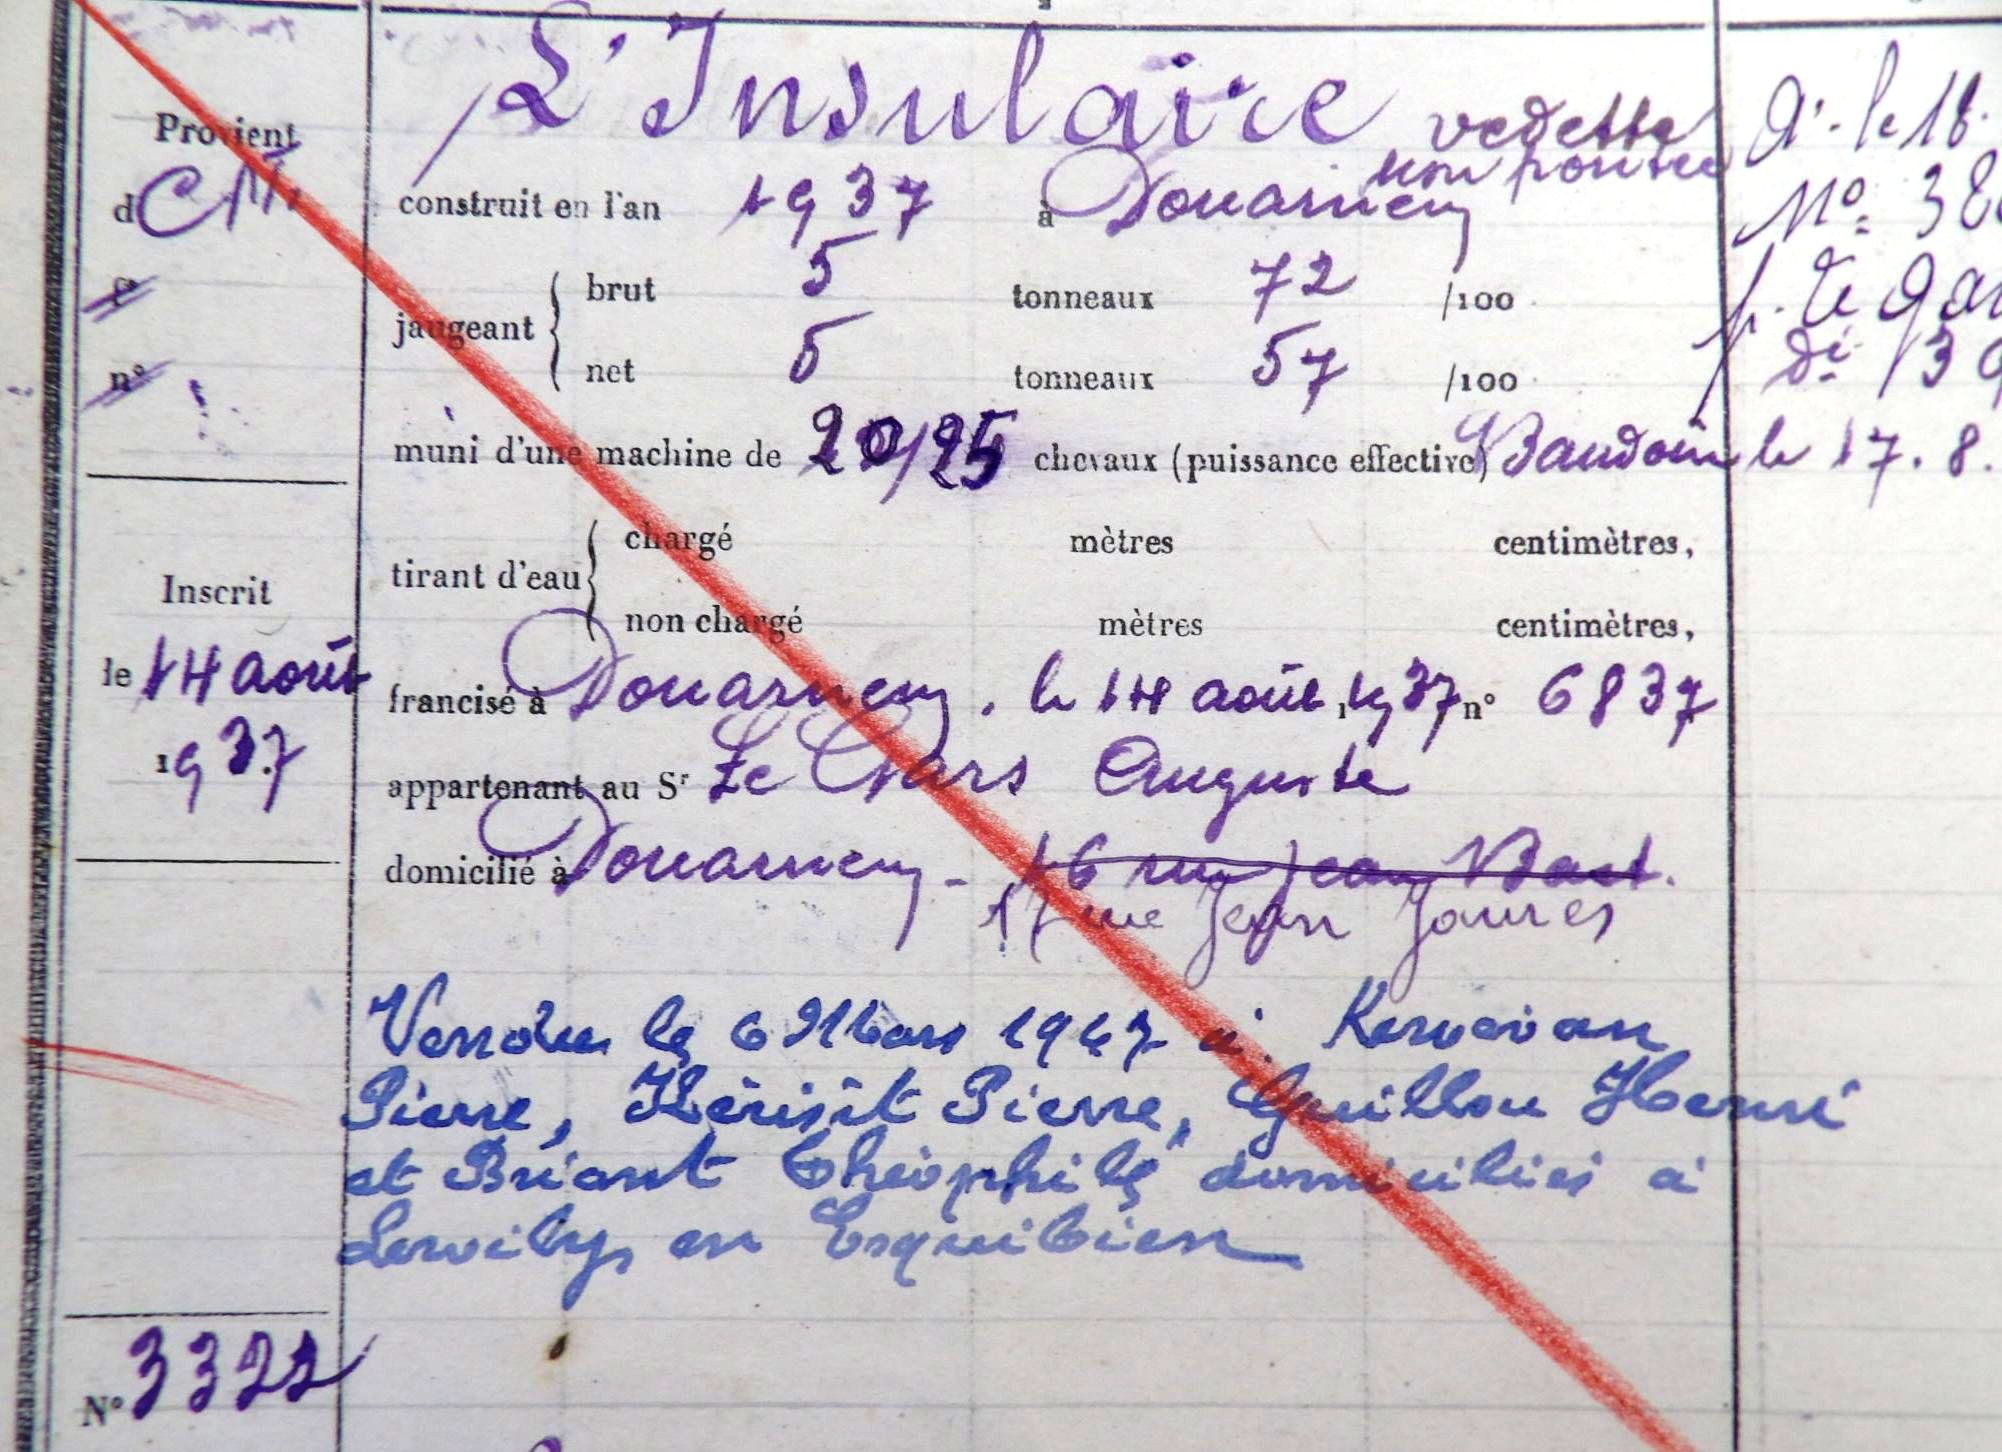 L'Insulaire vedette
non pontée
Provient
d CN
construit en l'an 1937 à Douarnenez
fº
jaugeant { brut 5 tonneaux 72 /100
net 5 tonneaux 57 /100
nº
muni d'une machine de 20/25 chevaux (puissance effective) Baudoin
tirant d'eau { chargé mètres centimètres,
non chargé mètres centimètres,
Inscrit
le 14 août
1937
francisé à Douarnenez. le 14 août 1937 nº 6837
appartenant au Sr Le Gars Auguste
domicilié à Douarnenez - 16 rue Jean Bart.
17 rue Jean Jaures
Vendu le 6 Mars 1947 à Kervévan
Pierre, Kérisit Pierre, Guillou Henri
et Briant Théophile domiciliés à
Lervily en Esquibien
Nº 3322
le 18.
Nº 38
le 17.8.